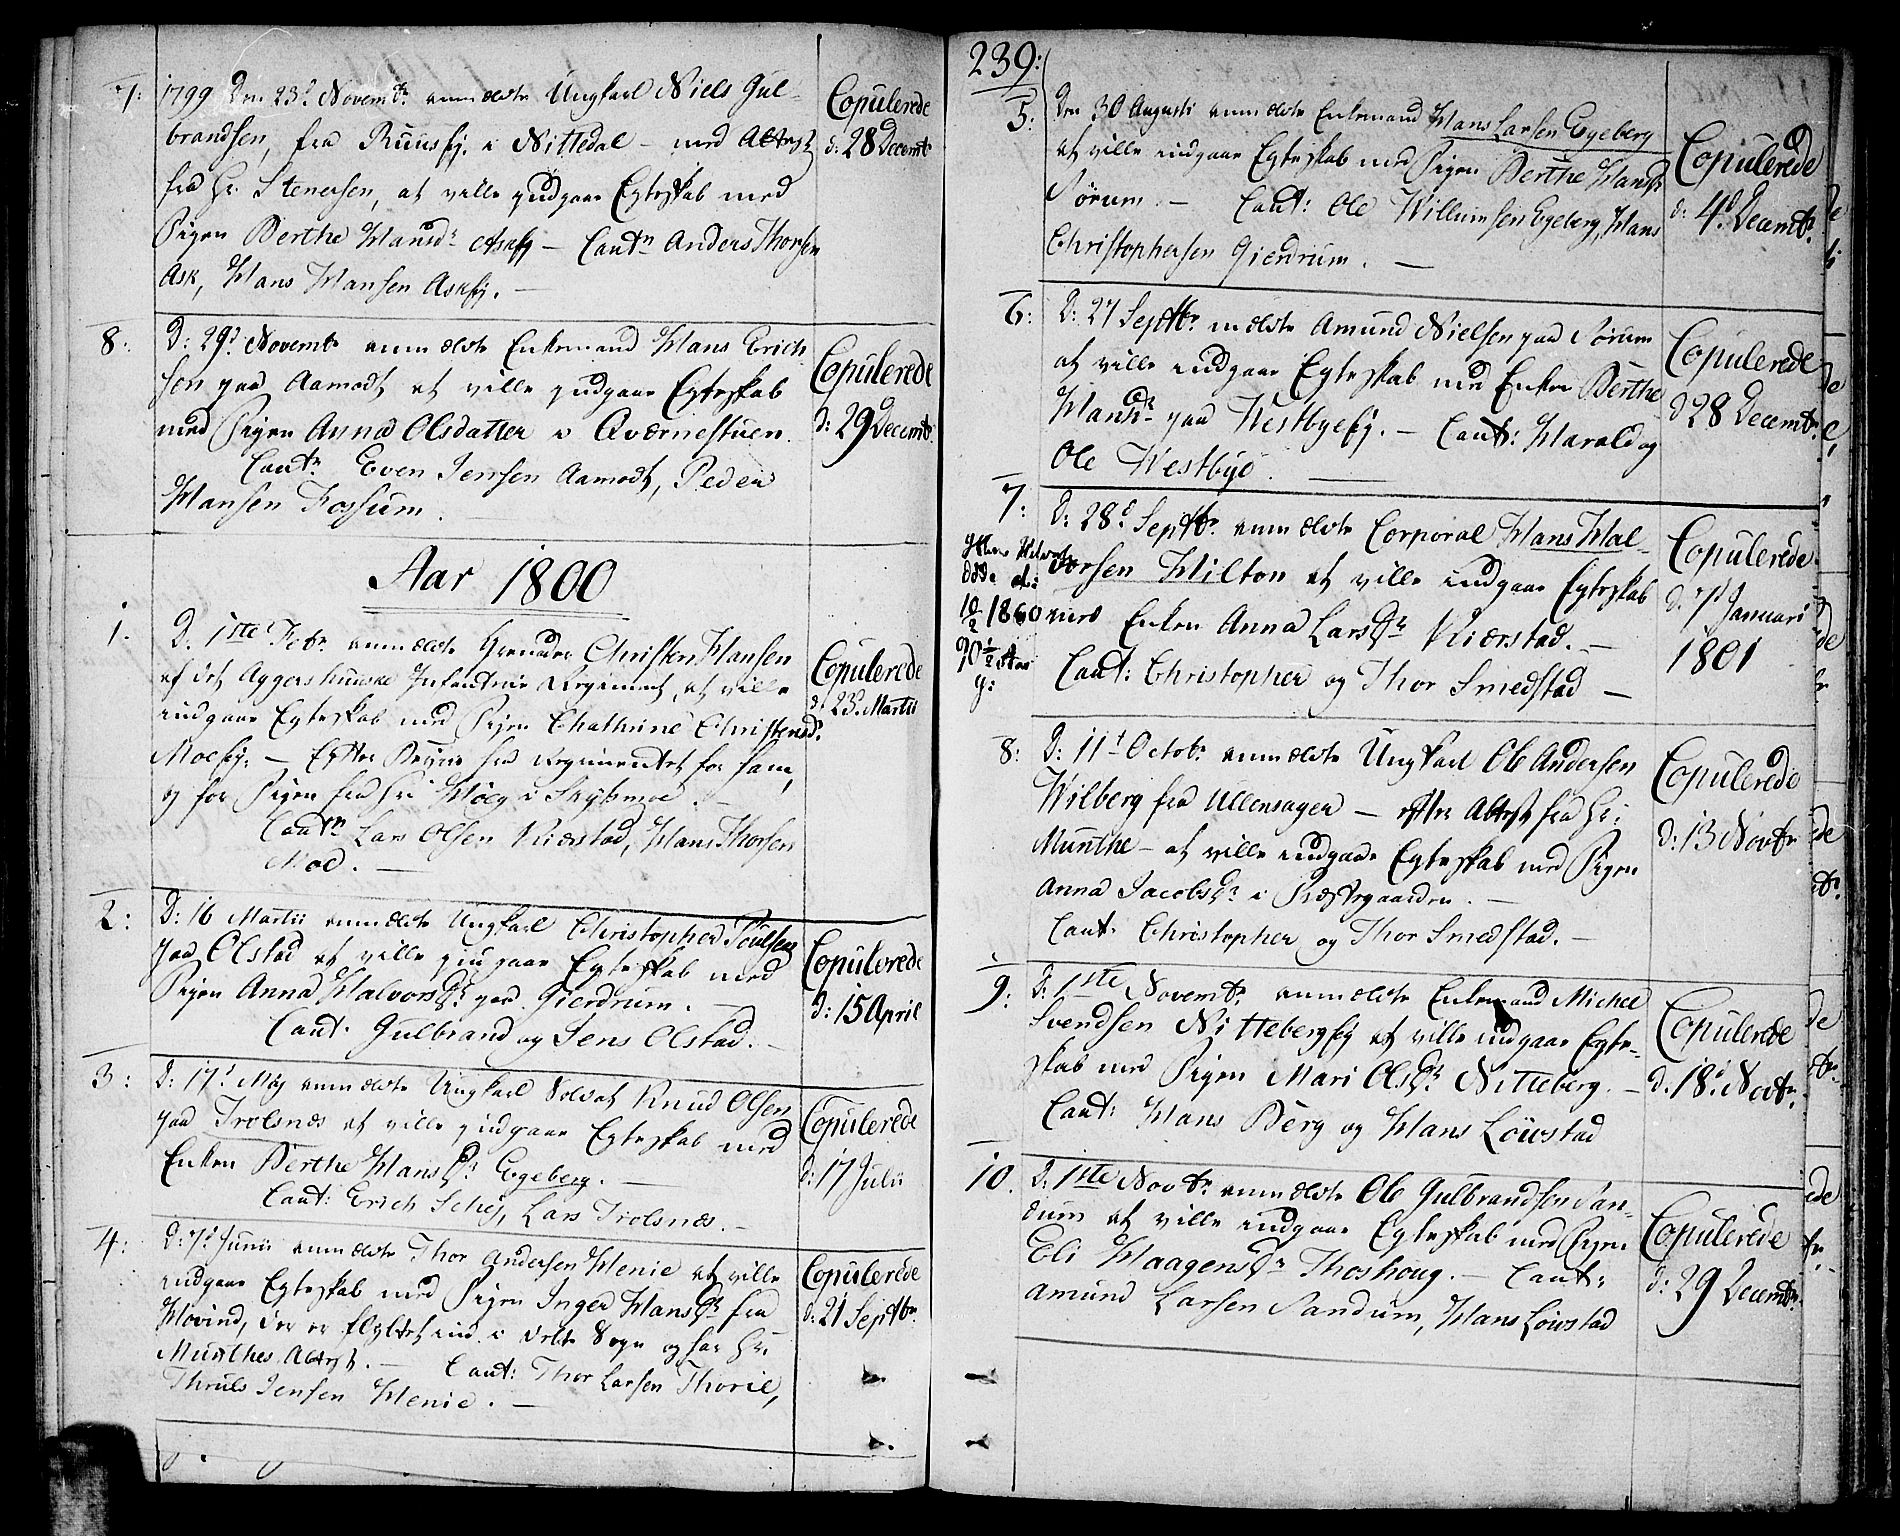 7: 1799 Den 23d Novembr anmældte Ungkarl Niels Gul-
brandsen, fra Ruusej. i Nittedal – med Attest
fra Hr. Stenersen, at ville indgaae Egteskab med
Pigen Berthe Hansdr Askej – Cautn Anders Thorsen
Ask, Hans Hansen Askej. –
Copulerede
d: 28 Decembr
8: D: 29d Novembr anmældte Enkemand Hans Erich
sen paa Aamodt at ville indgaae Egteskab
med Pigen Anna Olsdatter i Qværnestuen.
Cautn Even Jensen Aamodt, Peder
Hansen Fossum.
Copulerede
d: 29 Decembr
Aar 1800
1. D. 1ste Febr anmældte Grenader Christen Hansen
af det Aggershuuske Infanterie Regiment, at ville
indgaae Egteskab med Pigen Chathrine Christensdr
Moeej. – Efter Beviis fra Regimentet for ham,
og for Pigen fra Hr: Høeg i Skydsmoe. –
Cautn Lars Olsen Kierstad, Hans Thorsen
Moe. –
Copulerede
d: 23. Martii
2: D: 16 Martii anmældte Ungkarl Christopher Poulsen
paa Olstad at ville indgaae Egteskab med
Pigen Anna Halvorsdr paa Gierdrum. –
Caut. Gulbrand og Jens Olstad. –
Copulerede
d: 15 April
3: D: 17d Maj anmældte Ungkarl Soldat Knud Olsen
paa Trolsnæs at ville indgaae Egteskab med
Enken Berthe Hansdr Egeberg. –
Caut: Erich Schej, Lars Trolsnæs. –
Copulerede
d: 17 Julii
4: D: 7d Junii anmældte Thor Andersen Henie at ville
indgaae Egteskab med Pigen Inger Hansdr fra
Hovind, der er flyttet ind i dette Sogn og har Hr:
Munthes Attest. – Caut: Thor Larsen Thorie,
Thruls Jensen Henie. –
Copulerede
d: 21 Septbr
239:
5: Den 30 Augusti anmældte Enkemand Hans Larsen Egeberg
at ville indgaae Egteskab med Pigen Berthe Hansdr
Sørum. – Caut: Ole Willumsen Egeberg, Hans
Christophersen Gierdrum. –
Copulerede
d: 4d Decembr
6: D: 27 Septbr meldte Amund Nielsen paa Sørum
at ville indgaae Egteskab med Enken Berthe
Hansdr paa Westbyeej. – Caut: Harald og
Ole Westbye. –
Copulerede
d 28 Decembr
7: D: 28d Septbr anmældte Corporal Hans Hal-
vorsen Hilton at ville indgaae Egteskab
med Enken Anna Larsdr Kierstad. –
Caut: Christopher og Thor Smedstad –
døde
10/2 1860
90 1/2 Aar
g:
Copulerede
d. 7d Januari
1801
8: D: 11t Octobr anmældte Ungkarl Ole Andersen
Wilberg fra Ullensager – efter Attest fra Hr:
Munthe – at ville indgaae Egteskab med Pigen
Anna Jacobsdr i Præstegaarden. –
Caut. Christopher og Thor Smedstad. –
Copulerede
d: 13 Novbr
9: D: 1ste Novembr anmældte Enkemand Michel
Svendsen Nittebergej at ville indgaae Egte-
skab med Pigen Mari Olsdr Nitteberg. –
Caut: Hans Berg og Hans Löwstad
Copulerede
d. 18d Novbr.
10. D: 1ste Novbr anmældte Ole Gulbrandsen San-
dum at ville indgaae Egteskab med Pigen
Eli Haagensdr Thoshoug. – Caut:
Amund Larsen Sandum, Hans Löwstad
Copulerede
d: 29 Decembr.